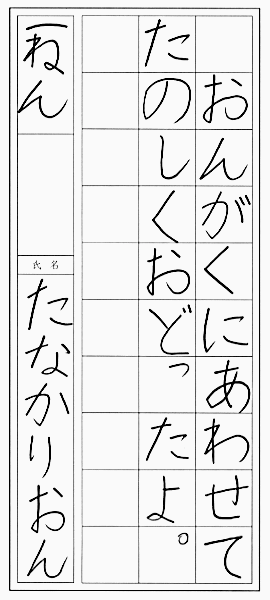 おんがくにあわせて
たのしくおどったよ。
一ねん
氏名
たなかりおん